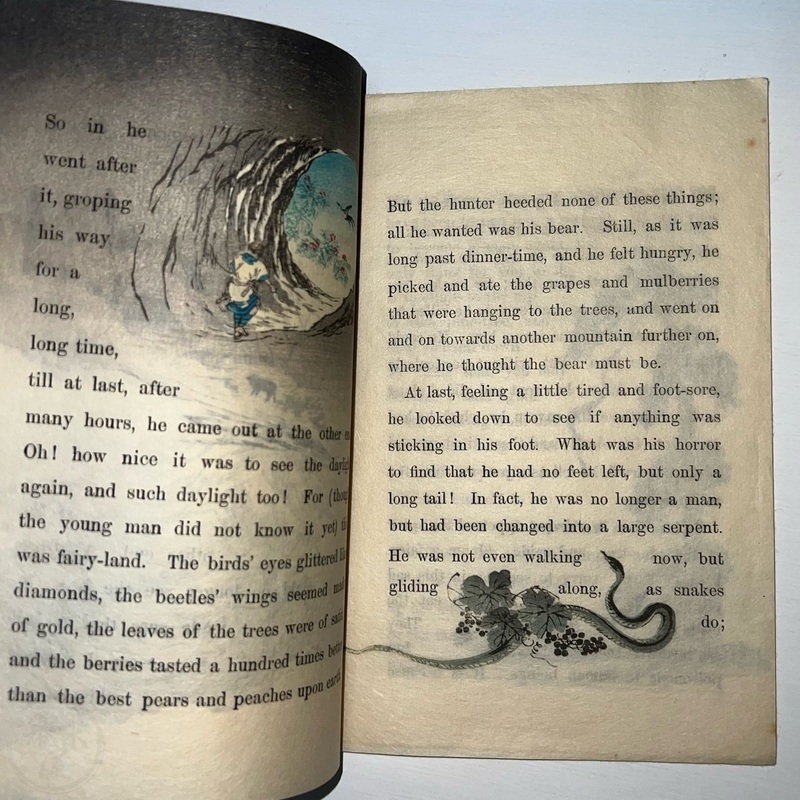 So in he
went after
it, groping
his way
for a
long,
long time,
till at last, after
many hours, he came out at the other
Oh! how nice it was to see the
again, and such daylight too! For
the young man did not know it yet)
was fairy-land. The birds' eyes glittered
diamonds, the beetles' wings seemed
of gold, the leaves of the trees were of
and the berries tasted a hundred times
than the best pears and peaches upon
But the hunter heeded none of these things;
all he wanted was his bear. Still, as it was
long past dinner-time, and he felt hungry, he
picked and ate the grapes and mulberries
that were hanging to the trees, and went on
and on towards another mountain further on,
where he thought the bear must be.
At last, feeling a little tired and foot-sore,
he looked down to see if anything was
sticking in his foot. What was his horror
to find that he had no feet left, but only a
long tail! In fact, he was no longer a man,
but had been changed into a large serpent.
He was not even walking now, but
gliding along, as snakes
do;